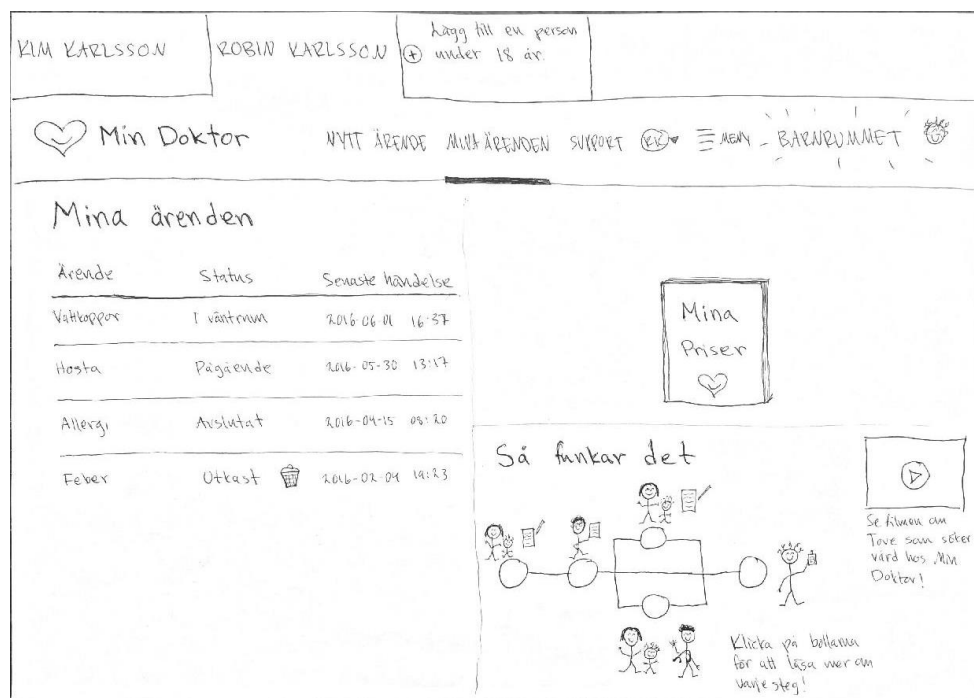 KIM KARLSSON
ROBIN KARLSSON
Lägg till en person
under 18 år.
Min Doktor
NYTT ÄRENDE MINA ÄRENDEN SUPPORT RK MENY BARNRUMMET
Mina ärenden
Ärende Status Senaste händelse
Vattkoppor I väntrum 2016-06-01 16:37
Hosta Pågående 2016-05-30 13:17
Allergi Avslutat 2016-04-15 08:20
Feber Utkast 2016-02-04 19:23
Mina
Priser
Så funkar det
Se filmen om
Tove som söker
vård hos Min
Doktor!
Klicka på bollarna
för att läsa mer om
varje steg!